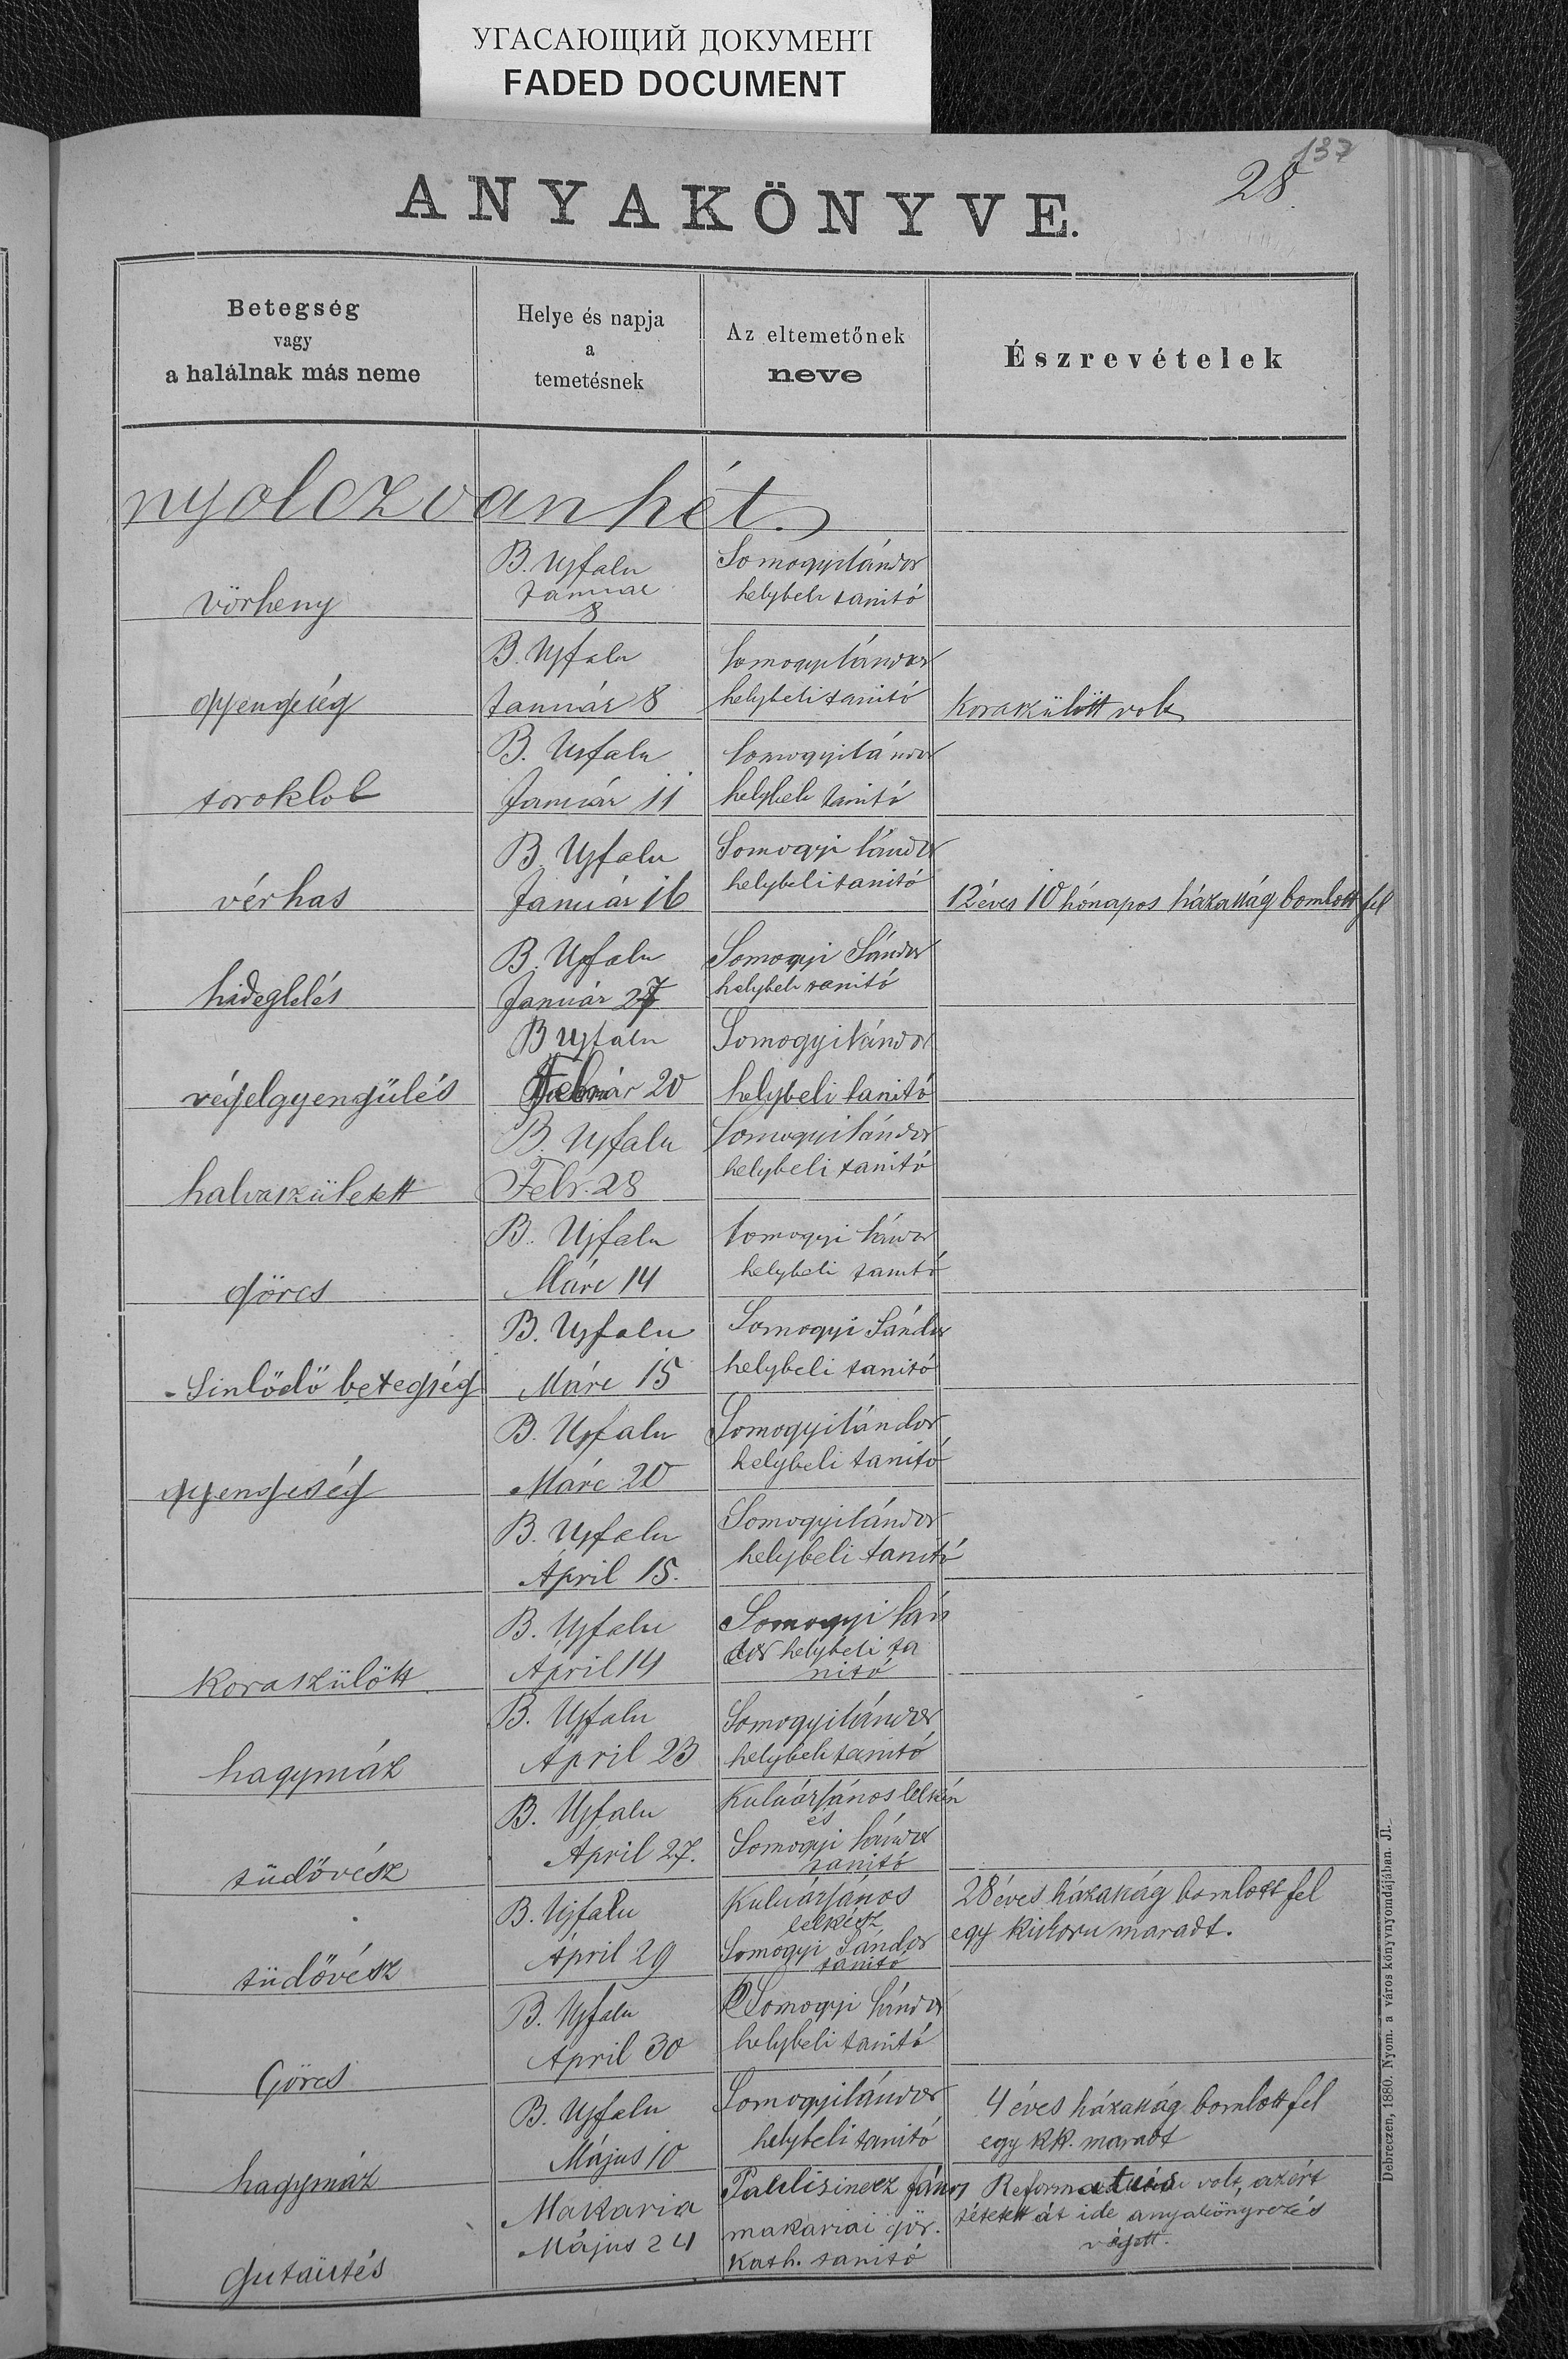 УГАСАЮЩИЙ ДОКУМЕНТ
FADED DOCUMENT
137
28.
ANYAKÖNYVE.
Betegség
vagy
a halálnak más neme
Helye és napja
a
temetésnek
Az eltemetőnek
neve
Észrevételek
nyolczvanhét.
B. Ujfalu
Somogyi Sándor
vörheny
Januar
helybeli tanitó
8
B. Ujfalu
Somogyi Sándor
gyengeség
Január 8
helybeli tanitó
Koraszülött volt
B. Ujfalu
Somogyi Sándor
toroklob
Január 11
helybeli tanitó
B. Ujfalu
Somogyi Sándor
vérhas
Január 16
helybeli tanitó
12 éves 10 hónapos házasság bomlott fel
B. Ujfalu
Somogyi Sándor
hideglelés
Január 27
helybeli tanitó
B Ujfalu
Somogyi Sándor
végelgyengülés
Február 20
helybeli tanitó
B. Ujfalu
Somogyi Sándor
halvaszületett
Febr. 28
helybeli tanitó
B. Ujfalu
Somogyi Sándor
görcs
Márc 14
helybeli tanitó
B. Ujfalu
Somogyi Sándor
Sinlődő betegség
Márc 15
helybeli tanitó
B. Ujfalu
Somogyi Sándor
gyengeség
Márc 20
helybeli tanitó
B. Ujfalu
Somogyi Sándor
Április 15.
helybeli tanitó
B. Ujfalu
Somogyi Sán
dor helybeli ta
koraszülött
April 14
nitó
B. Ujfalu
Somogyi Sándor
hagymáz
April 23
helybeli tanitó
B. Ujfalu
János lelkész
és
April 27.
Somogyi Sándor
tüdővész
tanitó
B. Ujfalu
János
28 éves házasság bomlott fel
lelkész
egy kiskoru maradt.
tüdővész
April 29
Somogyi Sándor
tanitó
B. Ujfalu
Somogyi Sándor
Görcs
April 30
helybeli tanitó
B. Ujfalu
Somogyi Sándor
4 éves házasság bomlott fel
hagymáz
Május 10
helybeli tanitó
egy kk. maradt
Makaria
János
volt, azért
makariai gör.
tétetett át ide anyakönyvezés
gutaütés
Május 24
kath. tanitó
végett.
Debreczen, 1880. Nyom. a város könyvnyomdájában. Jl.